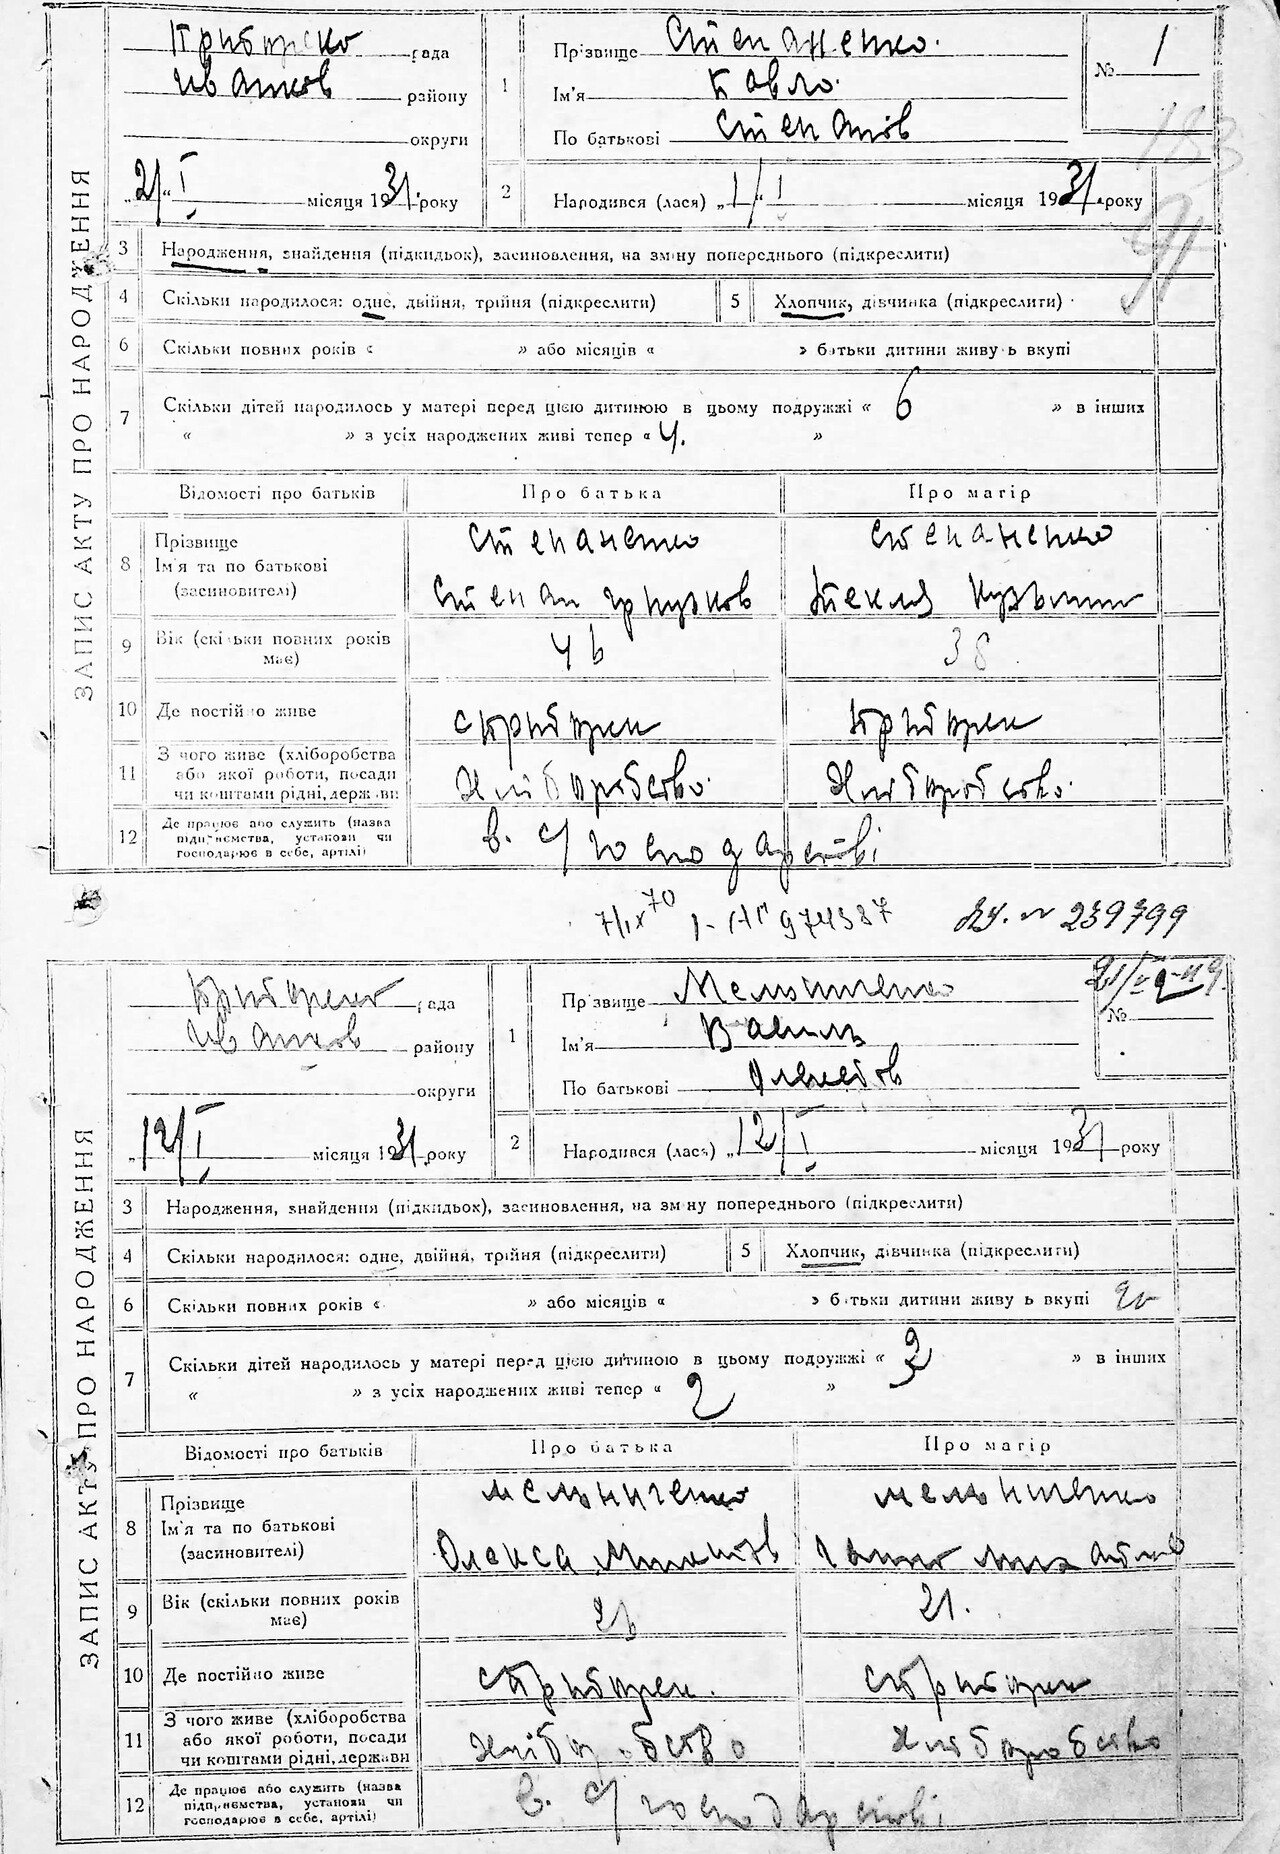 ЗАПИС АКТУ ПРО НАРОДЖЕННЯ
рада
Іванков району
округи
21/I місяця 1931 року
1 Прізвище Степаненко.
Ім'я Павло.
По батькові Степанов
№ 1
183
91
2 Народився (лася) „1/I місяця 1931 року
3 Народження, знайдення (підкидьок), засиновлення, на зміну попереднього (підкреслити)
4 Скільки народилося: одне, двійня, трійня (підкреслити) 5 Хлопчик, дівчинка (підкреслити)
6 Скільки повних років « » або місяців « » батьки дитини живуть вкупі
7 Скільки дітей народилось у матері перед цією дитиною в цьому подружжі « 6 » в інших
« » з усіх народжених живі тепер « 4. »
Відомості про батьків Про батька Про матір
8 Прізвище Степаненко Степаненко
Ім'я та по батькові
(засиновителі) Степан Текля
9 Вік (скільки повних років має) 46 38
10 Де постійно живе
11 З чого живе (хліборобства або якої роботи, посади чи коштами рідні, держави Хліборобство. Хліборобство.
12 Де працює або служить (назва підприємства, установи чи господарює в себе, артілі) в. с/господарстві
7/IX 70 974387 № 239799
ЗАПИС АКТУ ПРО НАРОДЖЕННЯ
рада
Іванков району
округи
12/I місяця 1931 року
1 Прізвище Мельниченко
Ім'я Василь
По батькові Олексов
№
2 Народився (лася) „12/I місяця 1931 року
3 Народження, знайдення (підкидьок), засиновлення, на зміну попереднього (підкреслити)
4 Скільки народилося: одне, двійня, трійня (підкреслити) 5 Хлопчик, дівчинка (підкреслити)
6 Скільки повних років « » або місяців « » батьки дитини живуть вкупі
7 Скільки дітей народилось у матері перед цією дитиною в цьому подружжі « 2 » в інших
« » з усіх народжених живі тепер « 2 »
Відомості про батьків Про батька Про матір
8 Прізвище Мельниченко Мельниченко
Ім'я та по батькові
(засиновителі) Олекса Ганна
9 Вік (скільки повних років має) 26 21.
10 Де постійно живе
11 З чого живе (хліборобства або якої роботи, посади чи коштами рідні, держави Хліборобство Хліборобство
12 Де працює або служить (назва підприємства, установи чи господарює в себе, артілі) в. с/господарстві